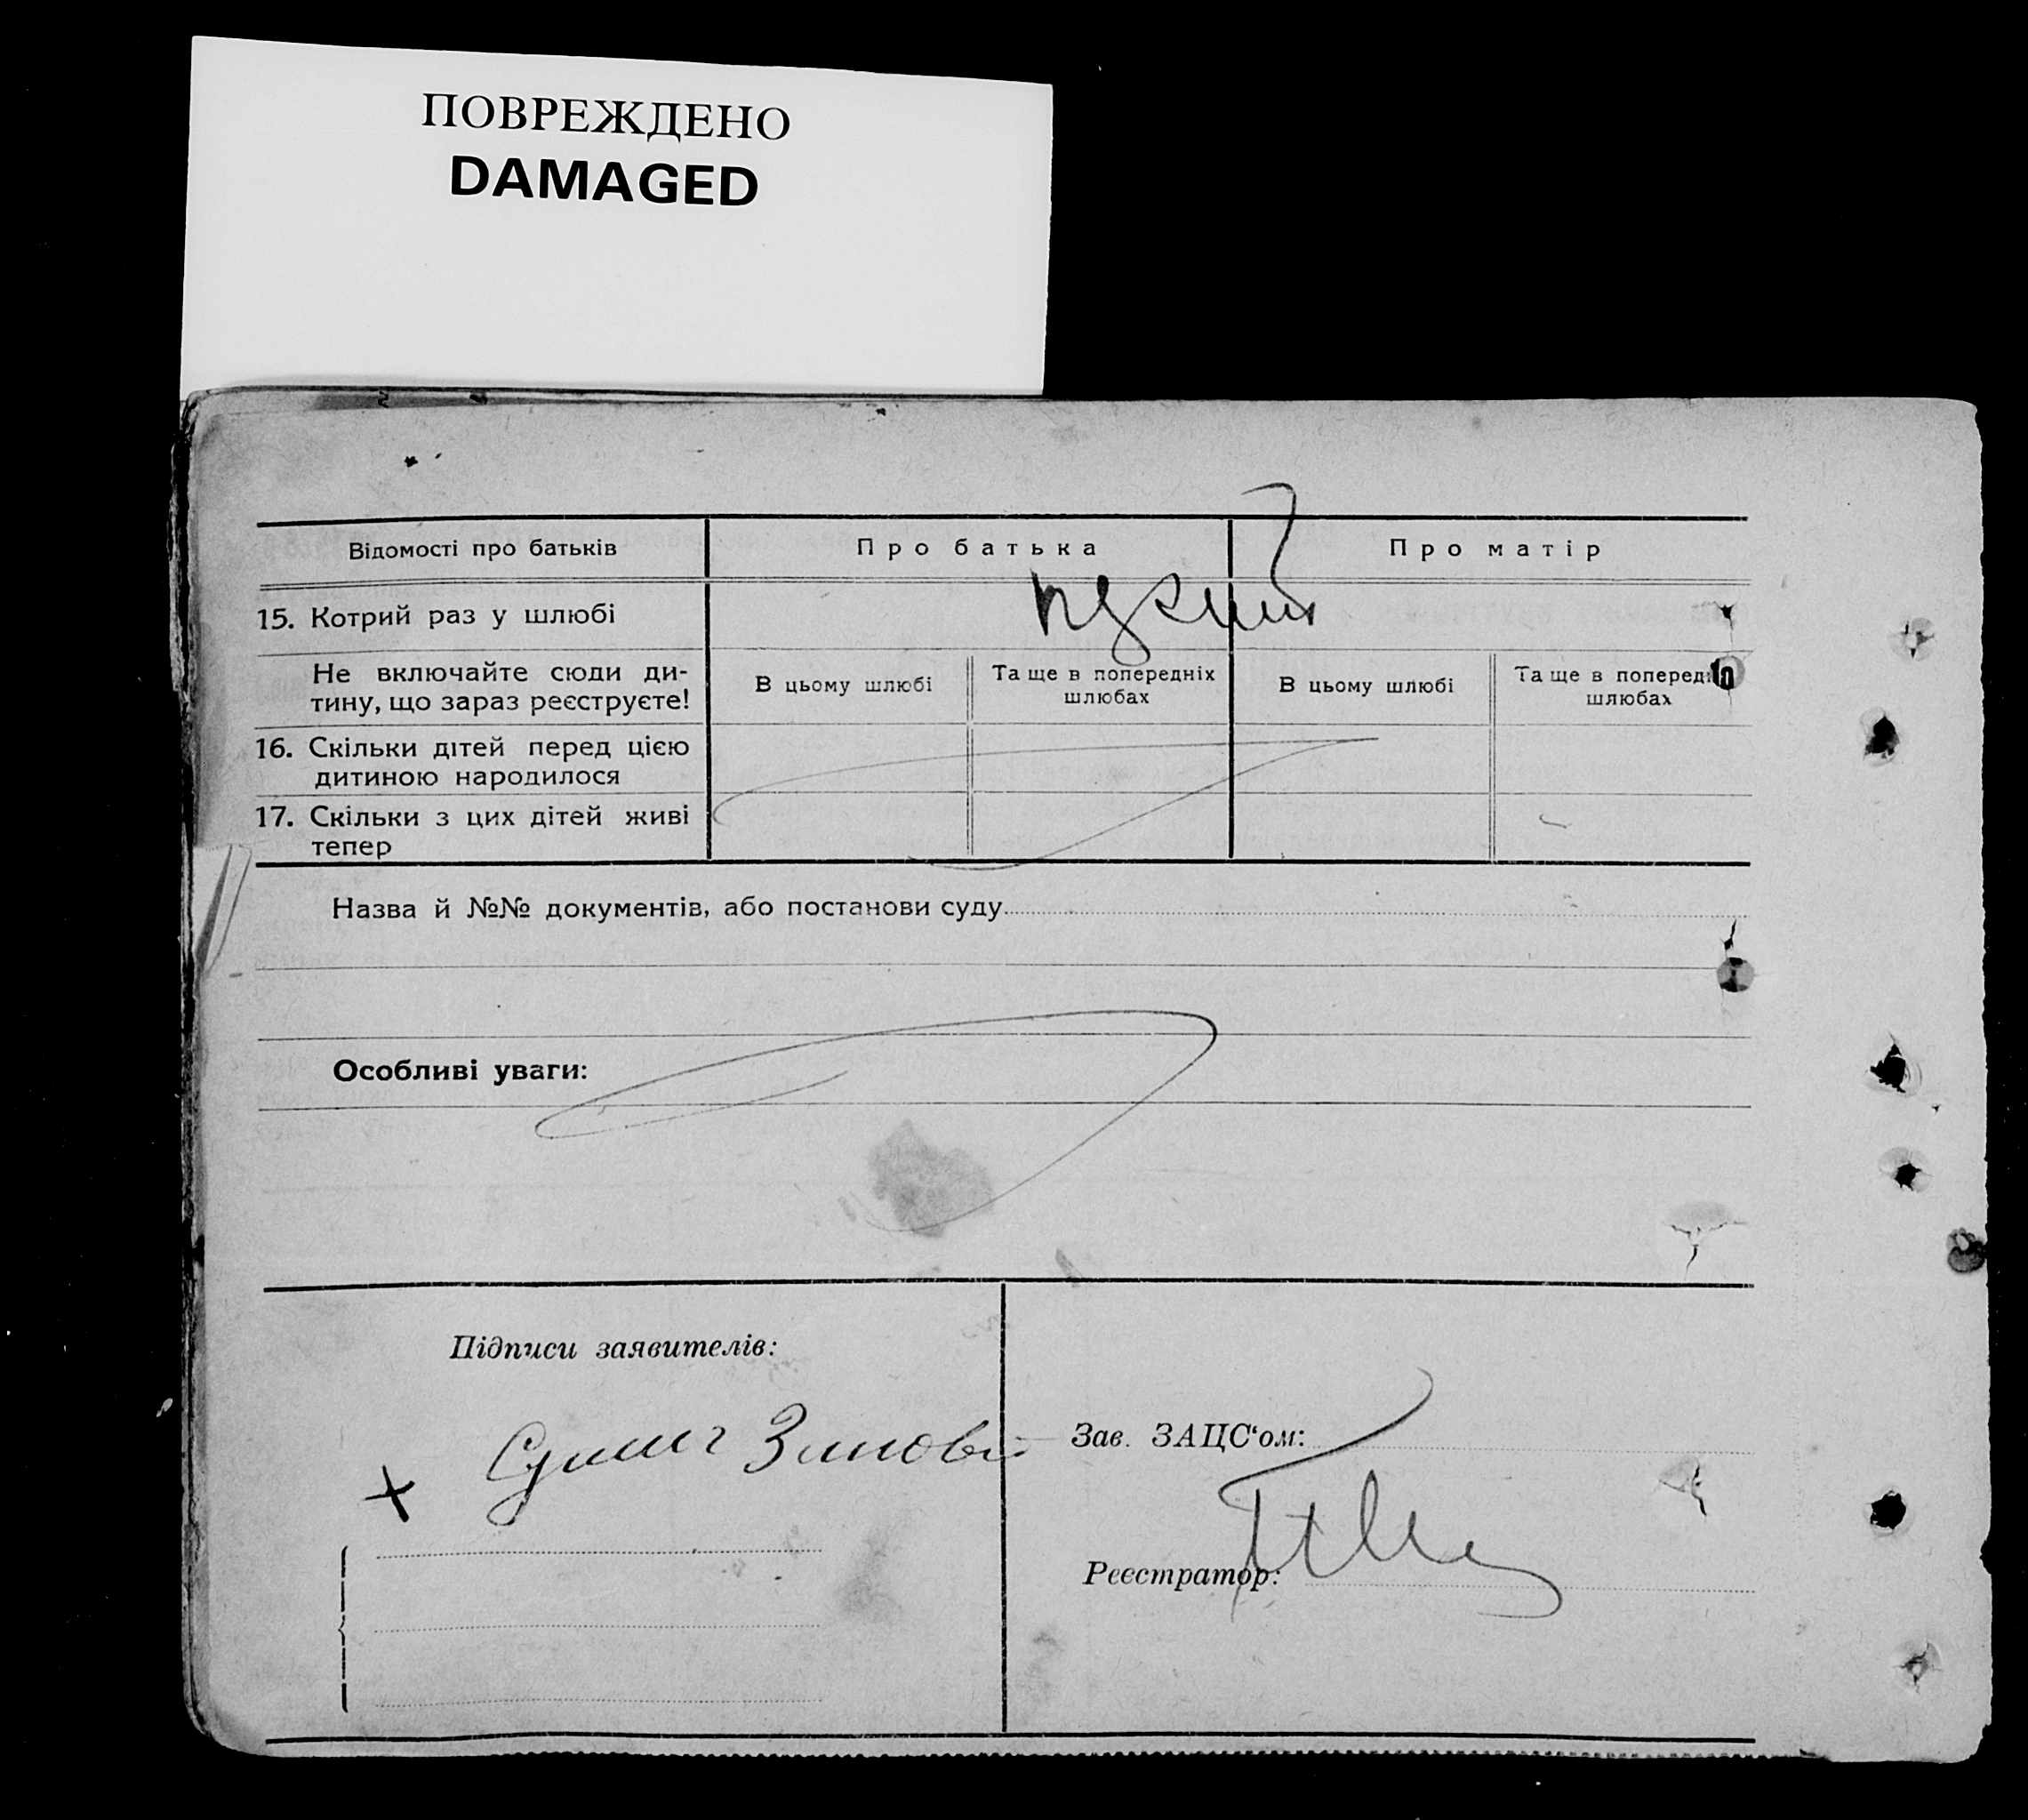 ПОВРЕЖДЕНО
DAMAGED
Відомості про батьків
Про батька
Про матір
15. Котрий раз у шлюбі
Не включайте сюди ди-
тину, що зараз реєструєте!
В цьому шлюбі
Та ще в попередніх
шлюбах
В цьому шлюбі
Та ще в
шлюбах
16. Скільки дітей перед цією
дитиною народилося
17. Скільки з цих дітей живі
тепер
Назва й №№ документів, або постанови суду
Особливі уваги:
Підписи заявителів:
Зав. ЗАЦС‘ом:
Реєстратор: